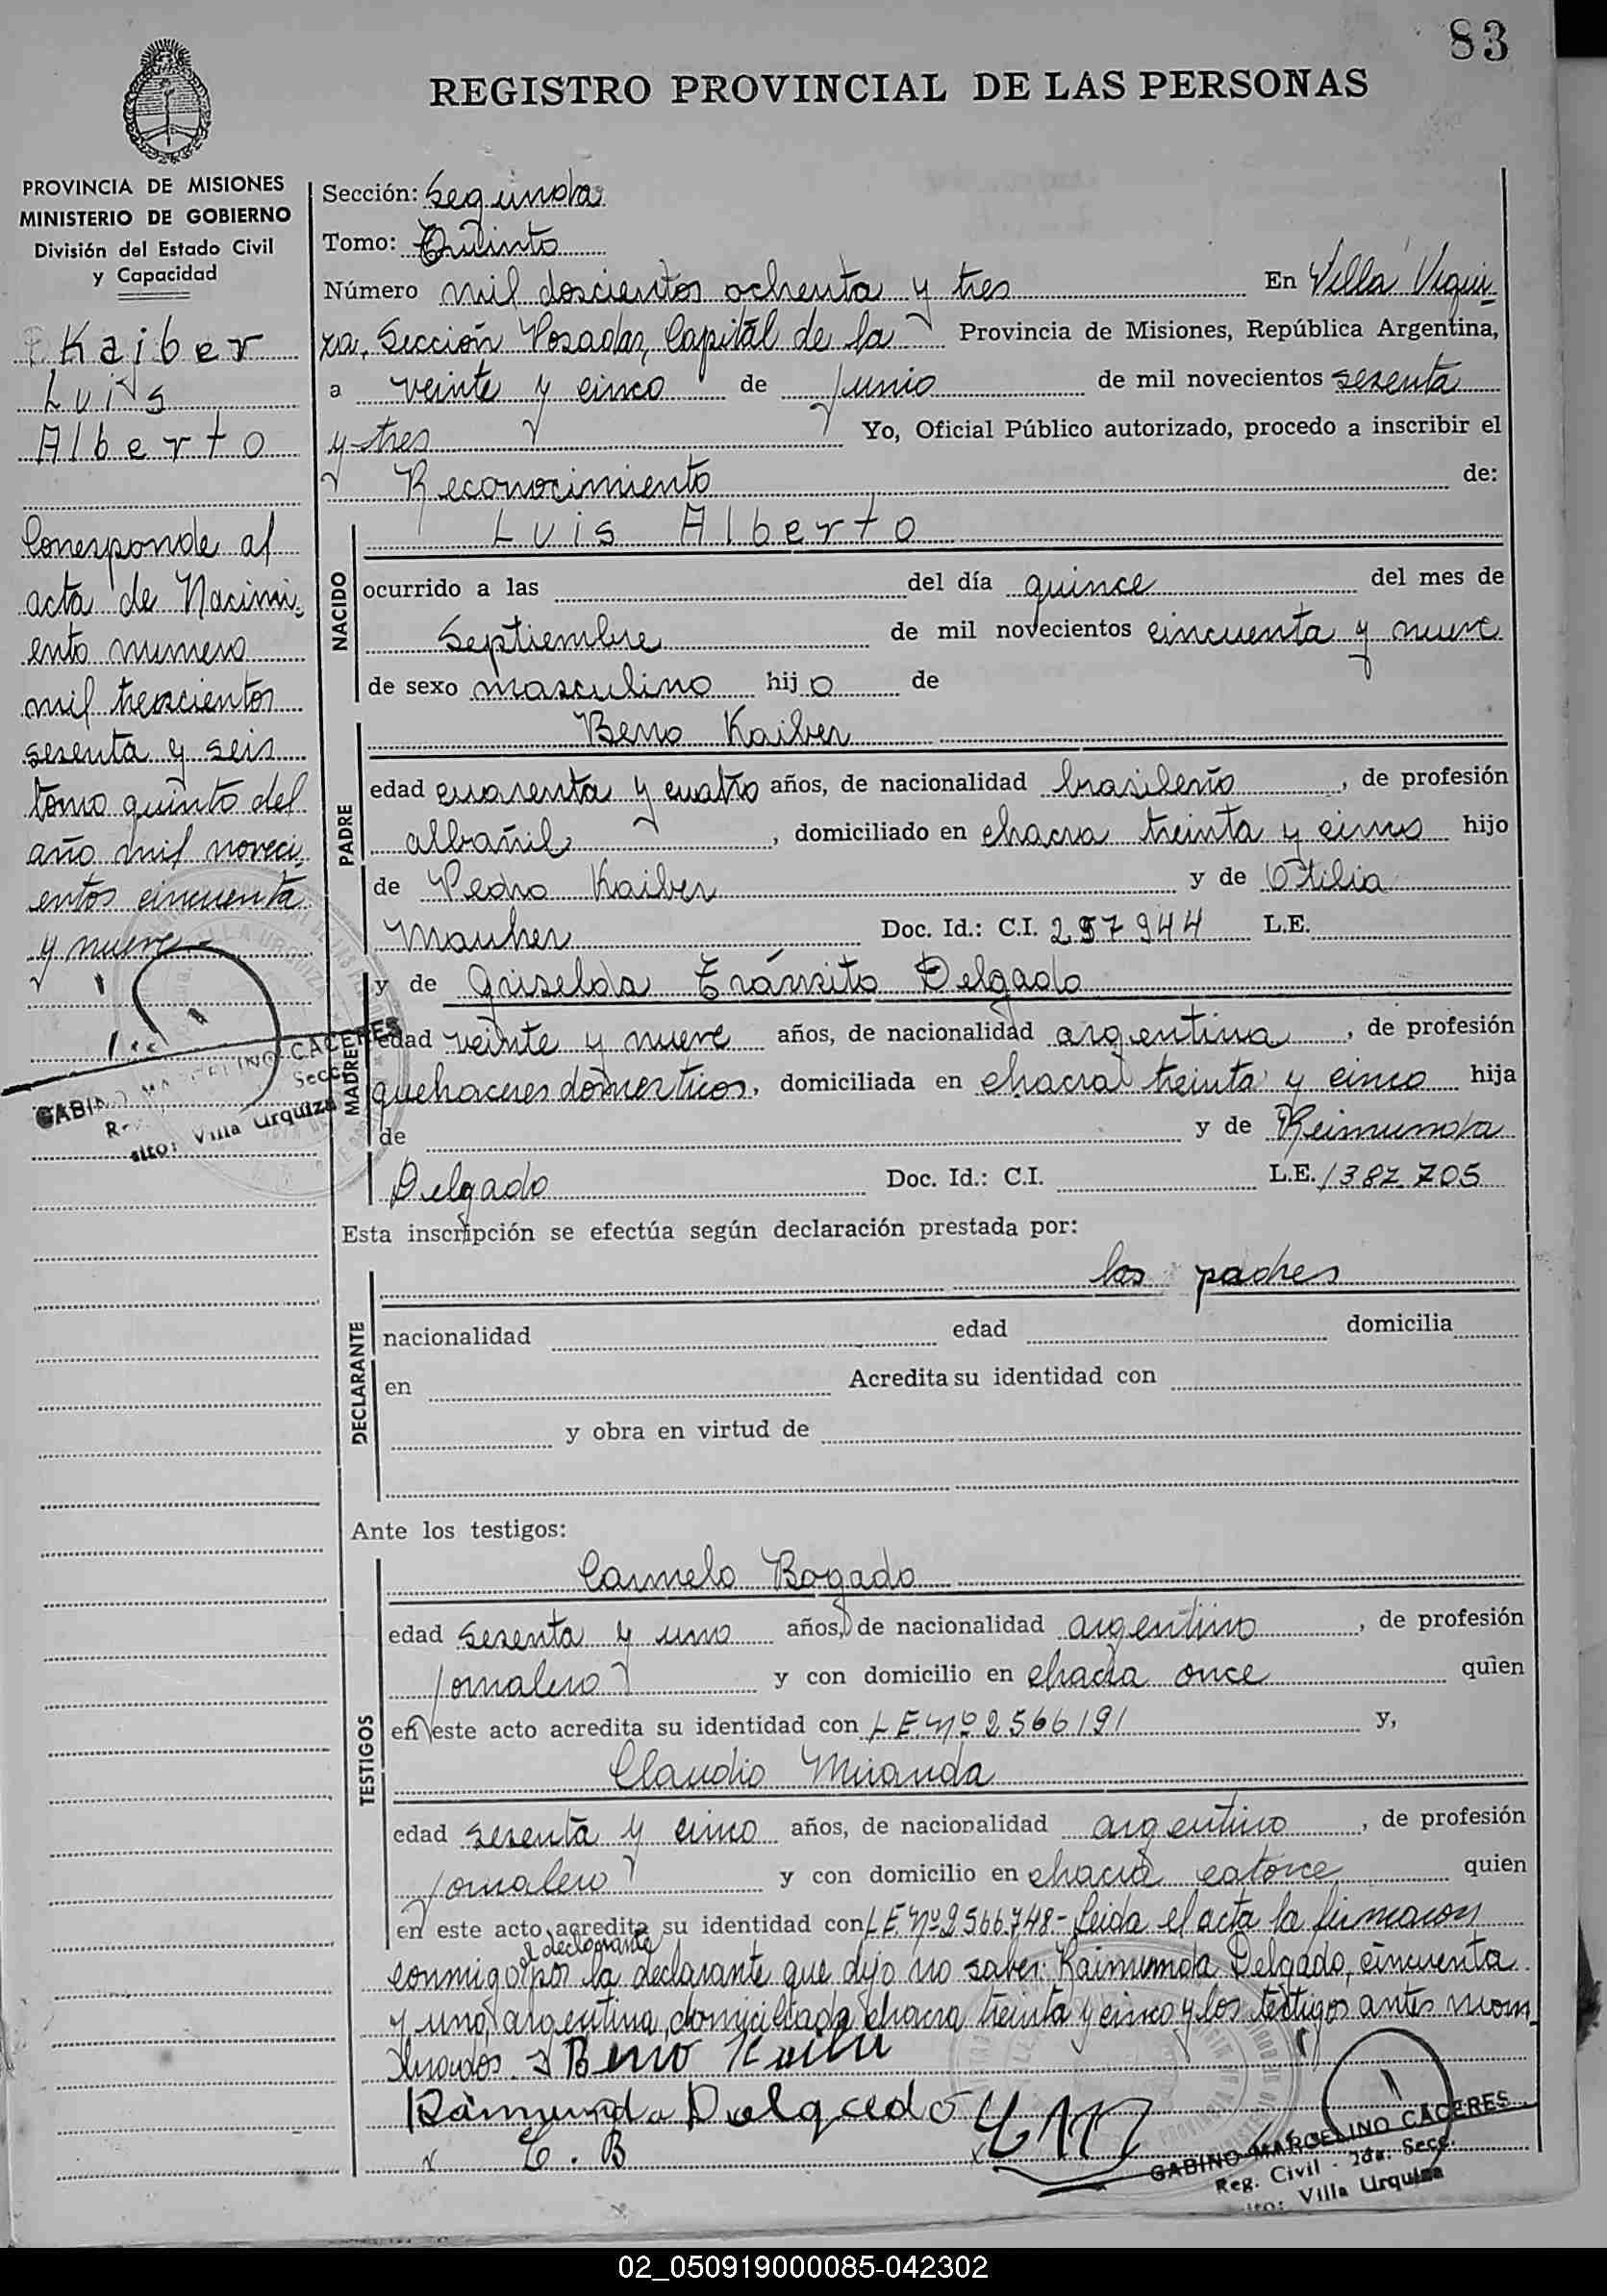 83
REGISTRO PROVINCIAL DE LAS PERSONAS
PROVINCIA DE MISIONES
MINISTERIO DE GOBIERNO
División del Estado Civil
y Capacidad
Kaiber
Luis
Alberto
Corresponde al
acta de Nacimi-
ento numero
mil trescientos
sesenta y seis
tomo quinto del
año mil noveci-
entos cincuenta
y nueve
Sección: Segunda
Tomo: Quinto
Número mil doscientos ochenta y tres En Villa Urqui-
za, Sección Posadas, Capital de la Provincia de Misiones, República Argentina,
a veinte y cinco de junio de mil novecientos sesenta
y tres Yo, Oficial Público autorizado, procedo a inscribir el
Reconocimiento de:
Luis Alberto
NACIDO
ocurrido a las del día quince del mes de
Septiembre de mil novecientos cincuenta y nueve
de sexo masculino hijo de
PADRE
Beno Kaiber
edad cuarenta y cuatro años, de nacionalidad brasileño, de profesión
albañil, domiciliado en chacra treinta y cinco hijo
de Pedro Kaiber y de Otilia
Doc. Id.: C.I. 257944 L.E.
MADRE
y de Griselda Tránsito Delgado
edad veinte y nueve años, de nacionalidad argentina, de profesión
quehaceres domesticos, domiciliada en chacra treinta y cinco hija
de y de Reimunda
Delgado Doc. Id.: C.I. L.E. 1382705
Esta inscripción se efectúa según declaración prestada por:
los padres
DECLARANTE
nacionalidad edad domicilia
en Acredita su identidad con
y obra en virtud de
Ante los testigos:
TESTIGOS
Carmelo Bogado
edad sesenta y uno años, de nacionalidad argentino, de profesión
jornalero y con domicilio en chacra once quien
en este acto acredita su identidad con LE Nº 2566191 y,
Claudio Miranda
edad sesenta y cinco años, de nacionalidad argentino, de profesión
jornalero y con domicilio en chacra catorce quien
en este acto acredita su identidad con LE Nº 2566748 - Leida el acta la firmaron
el declarante
conmigo por la declarante que dijo no saber Raimunda Delgado, cincuenta
y uno, argentina, domiciliada chacra treinta y cinco y los testigos antes nom-
brados.
Beno Kaiber
Raimunda Delgado
C. B
GABINO MARCELINO CACERES
Reg. Civil - 2da. Secc.
Villa Urquiza
GABINO MARCELINO CACERES
Secc.
Villa Urquiza
02_050919000085-042302